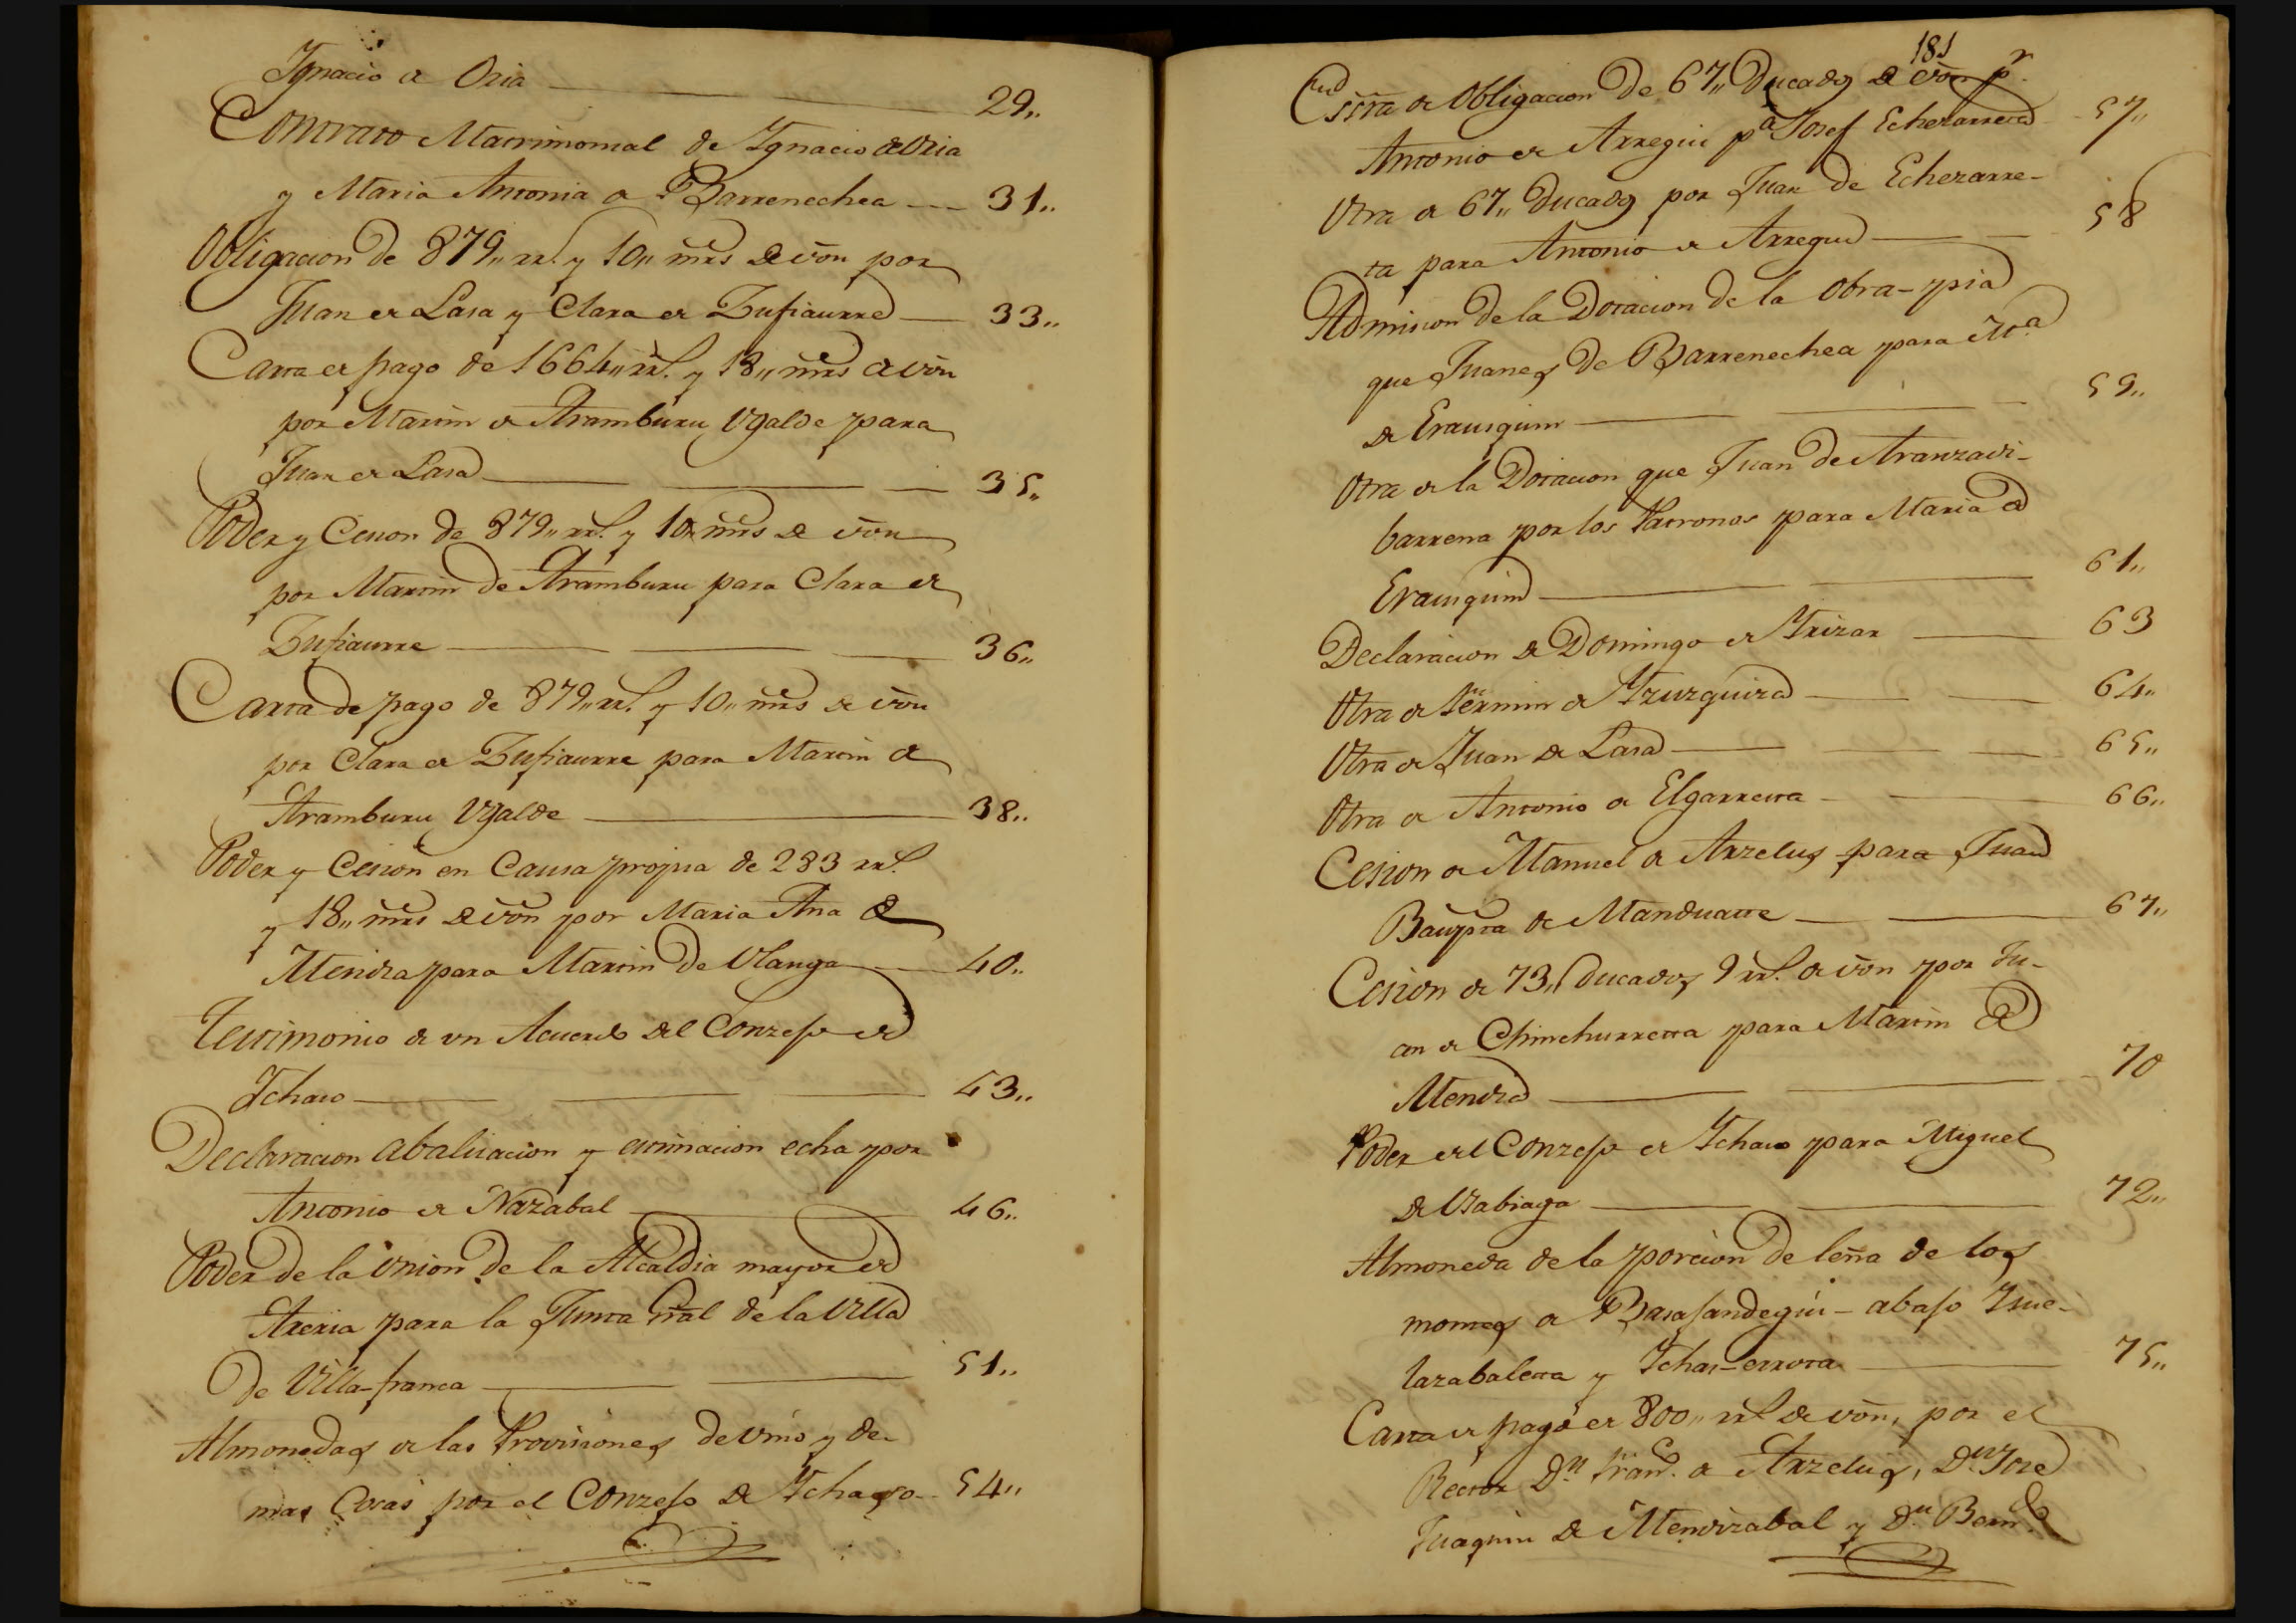 Ygnacio de Oria 29,,
Contrato Matrimonial de Ygnacio de Oria
y Maria Antonia de Barrenechea 31,,
Obligacion de 879,, rrs. y 10,, mrs de von por
Juan de Lasa y Clara de Zufiaurre 33,,
Carta de pago de 1664,, rrs. y 18,, mrs de von
por Martin de Aramburu Ugalde para
Juan de Lasa 35,,
Poder y Cesion de 879,, rrs. y 10,, mrs de von
por Martin de Aramburu para Clara de
Zufiaurre 36,,
Carta de pago de 879,, rrs. y 10,, mrs de von
por Clara de Zufiaurre para Martin de
Aramburu Ugalde 38,,
Poder y Cesion en Causa propia de 283 rrs.
y 18,, mrs de von por Maria Ana de
Mendia para Martin de Olanga 40,,
Testimonio de un Acuerdo del Conzejo de
Ychaso 43,,
Declaracion abaluacion y estimacion echa por
Antonio de Nazabal 46,,
Poder de la Union de la Alcaldia mayor de
Areria para la Junta Gral de la Villa
de Villa-franca 51,,
Almonedas de las Provisiones de vino y de-
mas Cosas por el Conzejo de Ychaso 54,,
181
Escra de Obligacion de 67,, Ducados de von pr.
Antonio de Arregui pa Josef Echezarreta 57,,
Otra de 67,, Ducados por Juan de Echezarre-
ta para Antonio de Arregui 58
Admision de la Dotacion de la Obra-pia
que Juanes de Barrenechea para Ma
de Erausquin 59,,
Otra de la Dotacion que Juan de Aranzadi-
barrena por los Patronos para Maria de
Erausquin 61,,
Declaracion de Domingo de Yrizar 63
Otra de Fermin de Yzuzquiza 64,,
Otra de Juan de Lasa 65,,
Otra de Antonio de Elgarresta 66,,
Cesion de Manuel de Arzelus para Juan
Baupta de Manduate 67,,
Cesion de 73,, Ducados 9 rrs. de von por Ju-
an de Chinchurreta para Martin de
Mendia 70
Poder del Conzejo de Ychaso para Miguel
de Usabiaga 72,,
Almoneda de la porcion de leña de los
montes de Basajandegui-abajo Ysue-
lazabaleta y Ychas-errota 75,,
Carta de pago de 800,, rrs de von, por el
Rector Dn Fran.co de Arzelus, Dn Jose
Juaquin de Mendizabal y Dn Bern.do